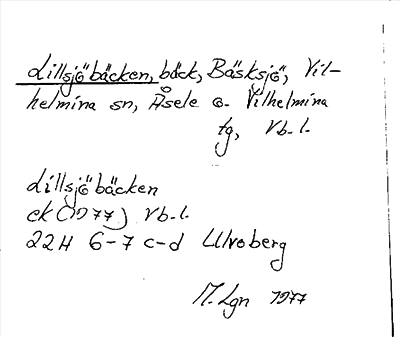 Lillsjöbäcken, bäck, Bäsksjö, Vil-
helmina sn, Åsele o. Vilhelmina
tg, Vb.l.
Lillsjöbäcken
ek (1977) Vb.l.
22H 6-7 c-d Ulvoberg
M. Lgn 1977